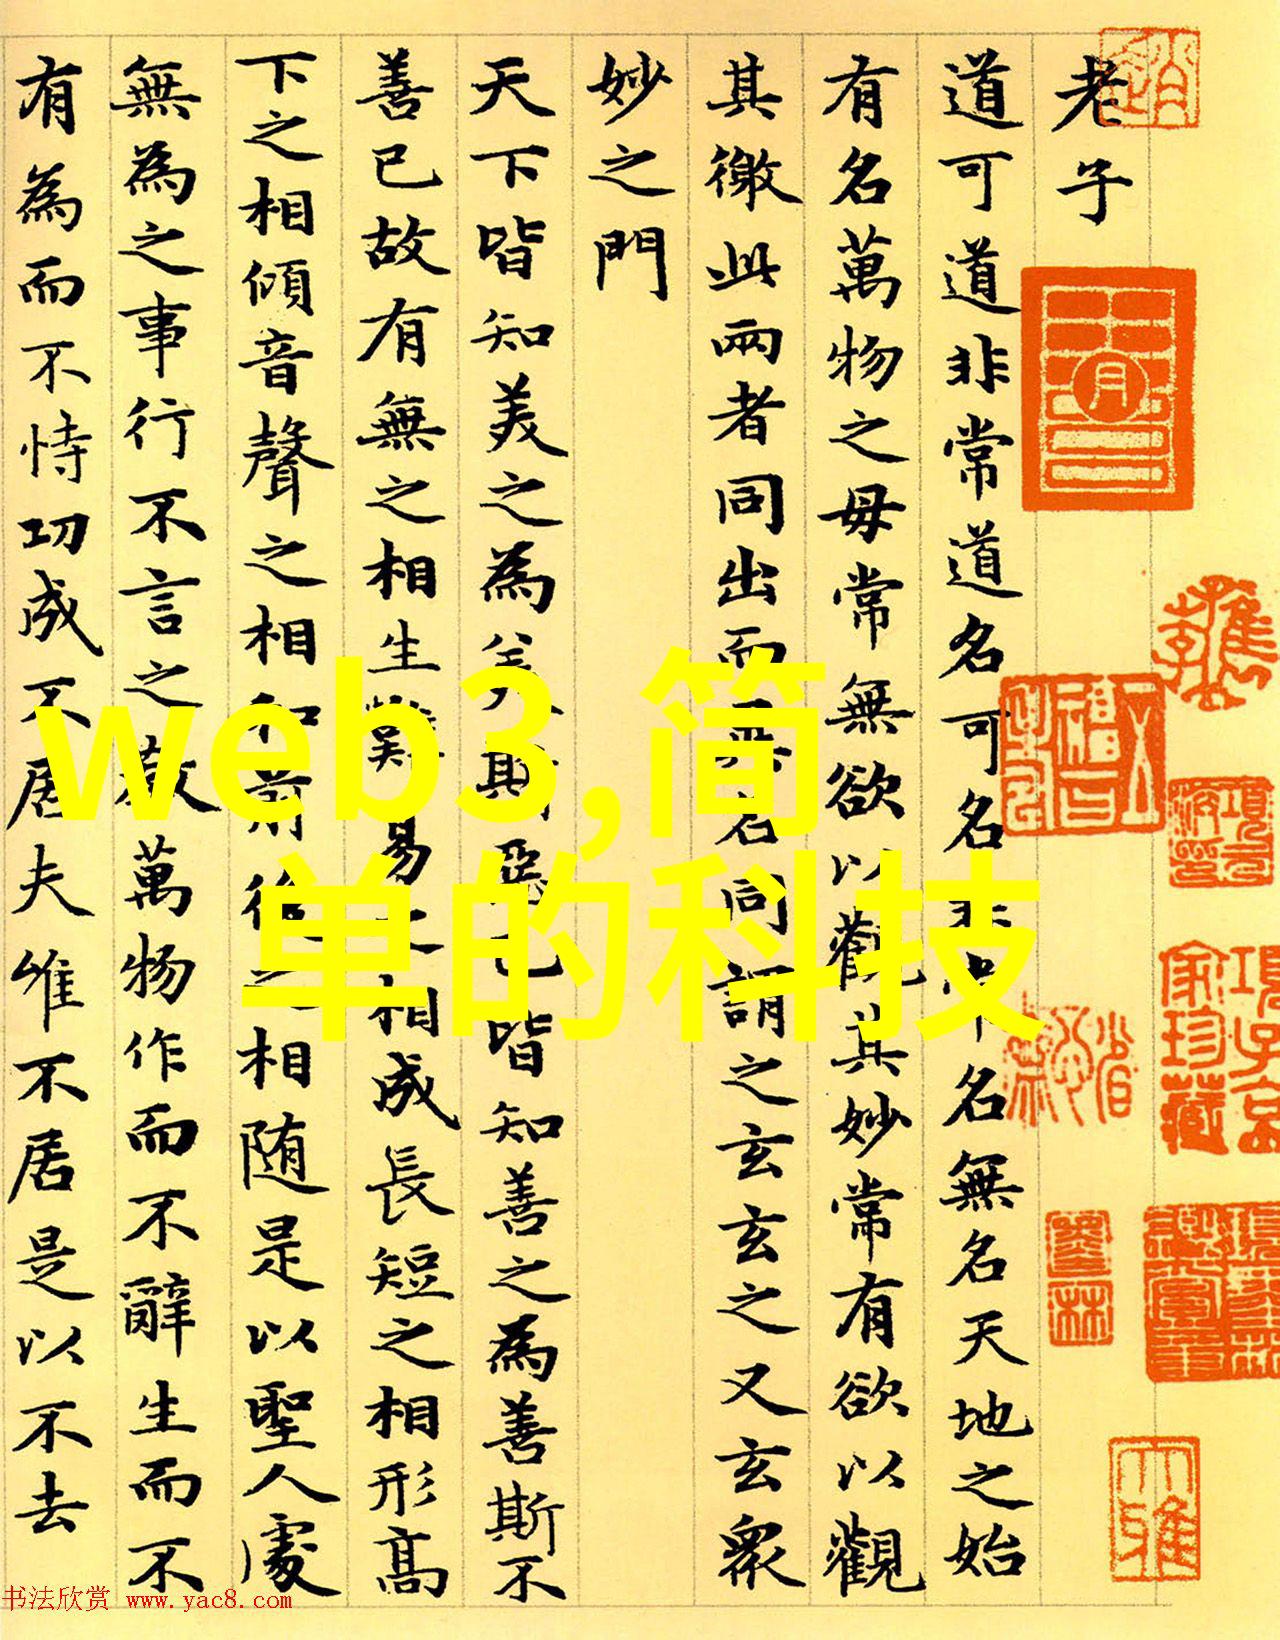 老子
道可道非常道名可名非常名無名天地之始
有名萬物之母常無欲以觀其妙常有欲以觀
其徼此兩者同出而異名同謂之玄玄之又玄衆
妙之門
天下皆知美之為美斯惡已皆知善之為善斯不
善已故有無之相生難易之相成長短之相形高
下之相傾音聲之相和前後之相随是以聖人處
無為之事行不言之教萬物作而不辭生而不
有為而不恃功成不居夫唯不居是以不去
web3,简
单的科技
书法欣赏 www.yac8.com